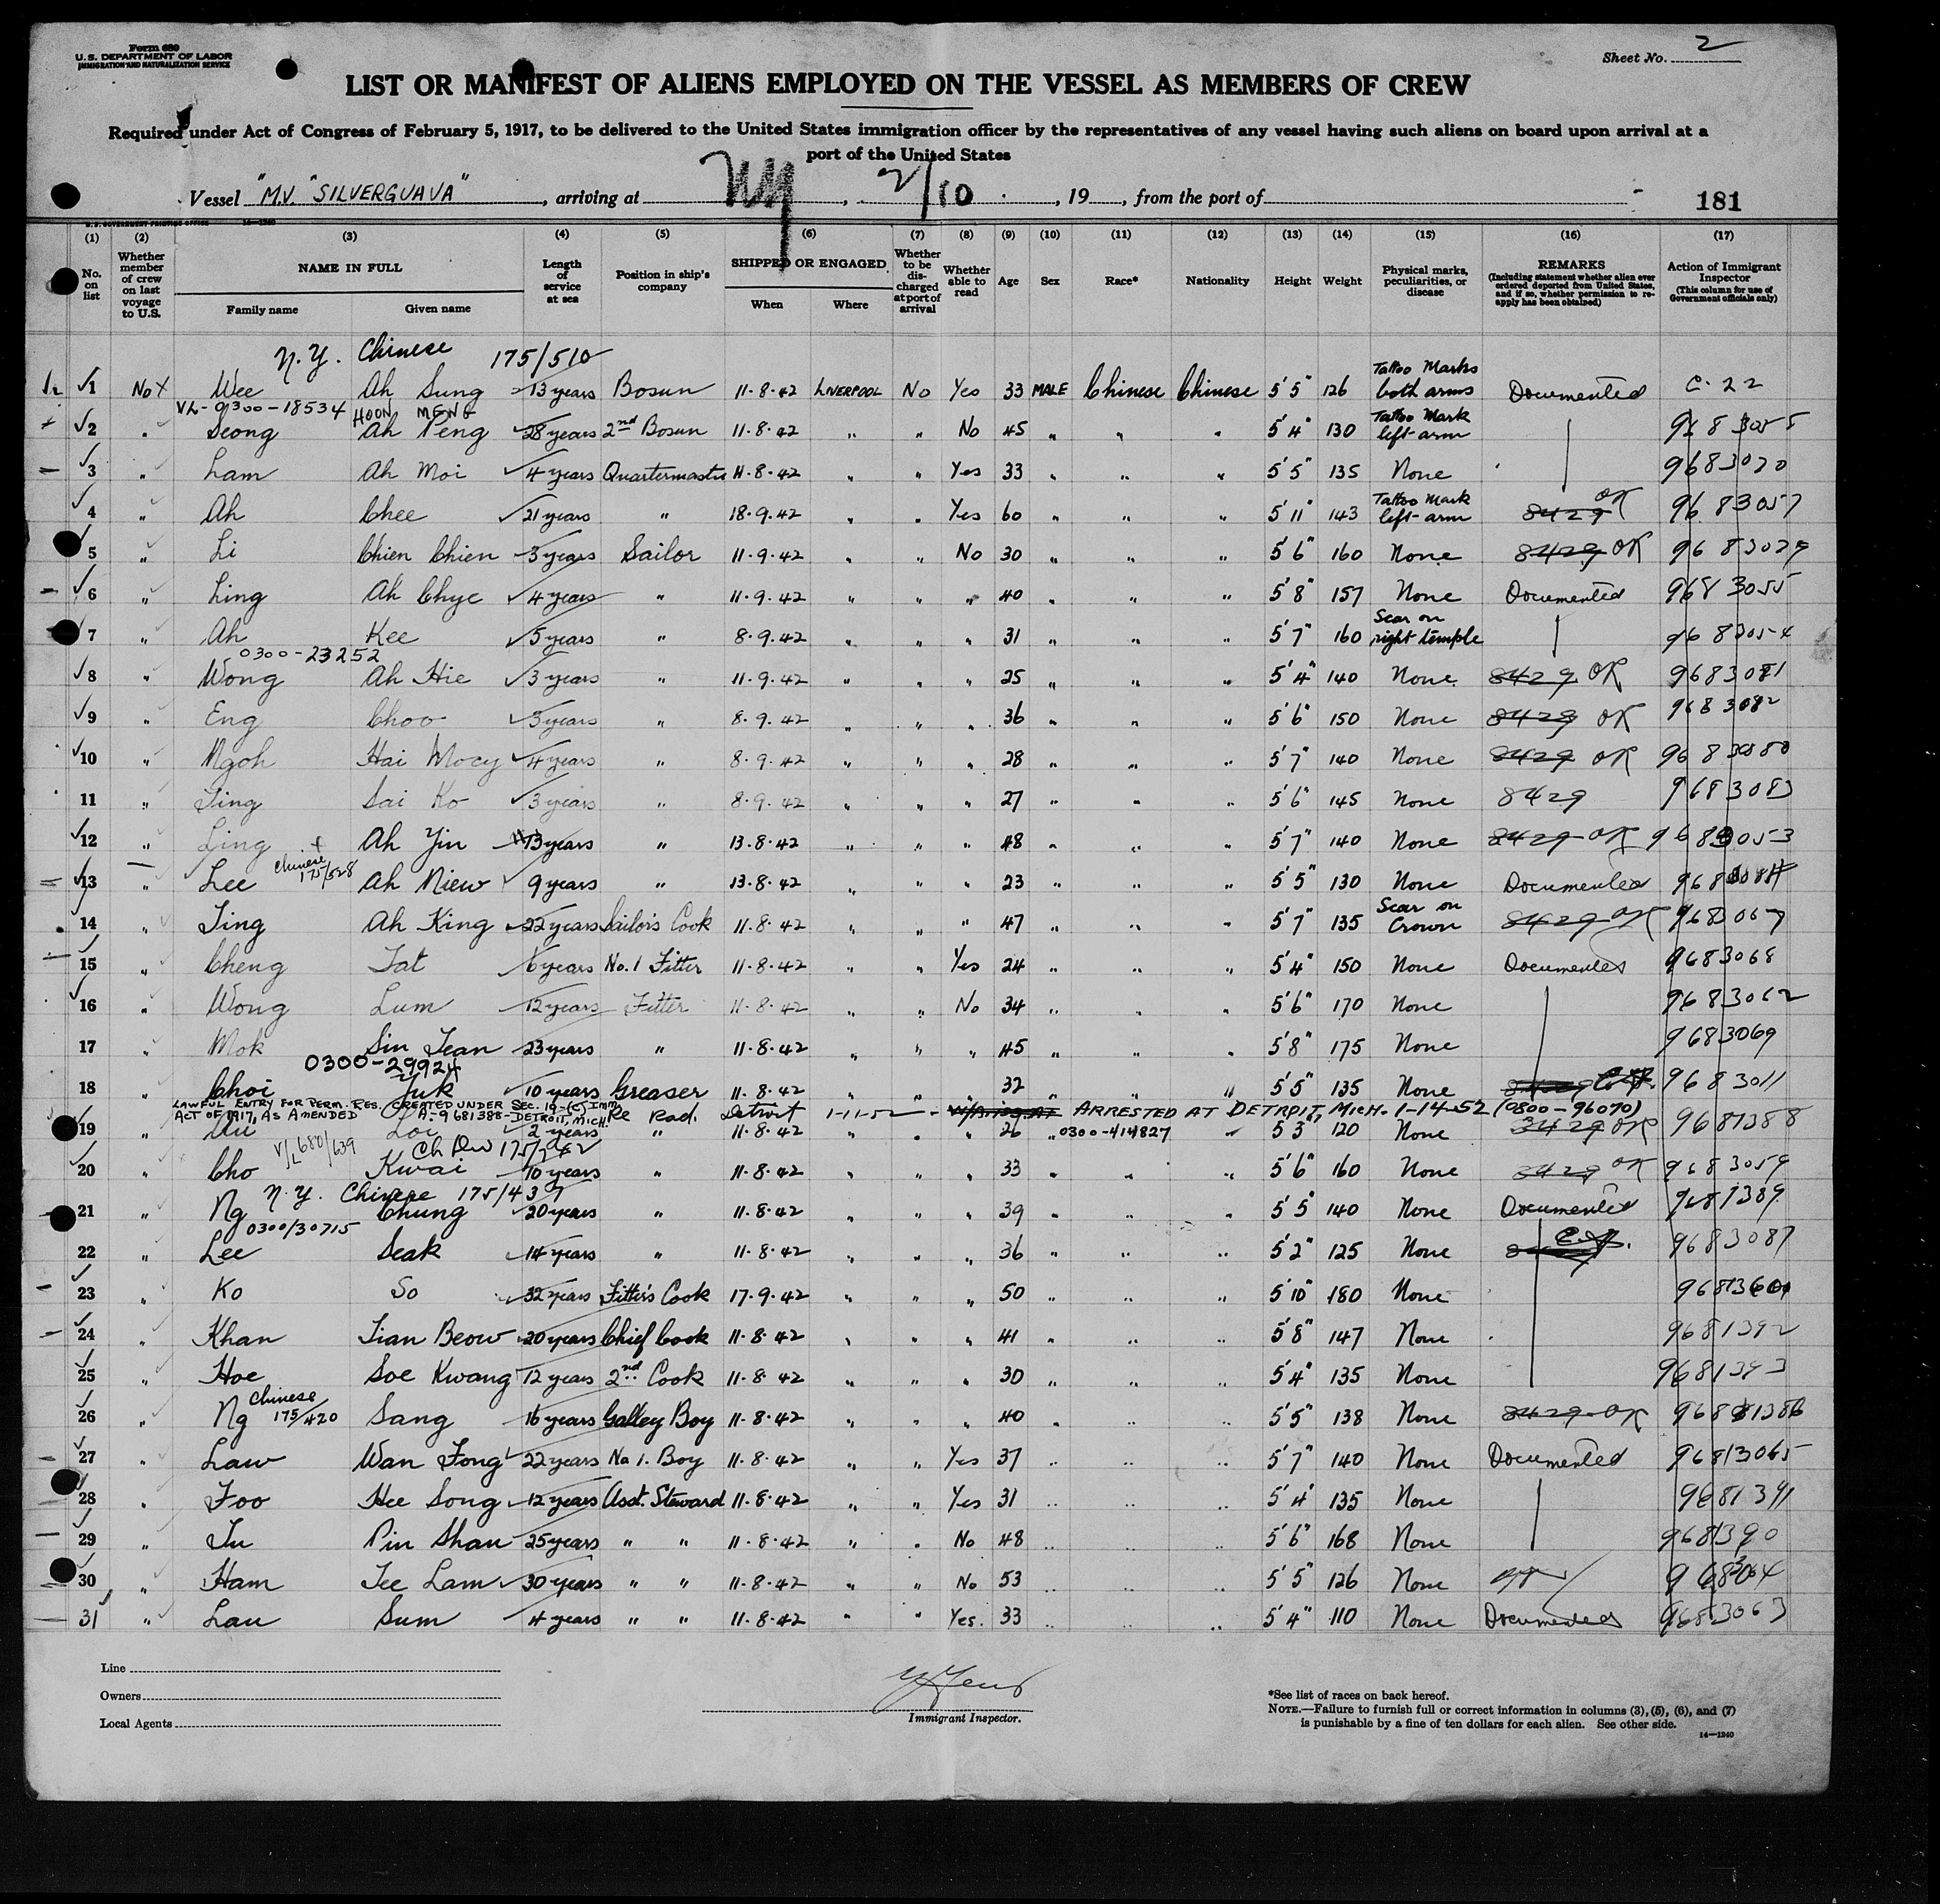 Form 680
U. S. DEPARTMENT OF LABOR
IMMIGRATION AND NATURALIZATION SERVICE
Sheet No. 2
LIST OR MANIFEST OF ALIENS EMPLOYED ON THE VESSEL AS MEMBERS OF CREW
Required under Act of Congress of February 5, 1917, to be delivered to the United States immigration officer by the representatives of any vessel having such aliens on board upon arrival at a
port of the United States
Vessel "M.V. "SILVERGUAVA", arriving at NY, 2/10, 19, from the port of
181
U.S. GOVERNMENT PRINTING OFFICE 14-1240
(1) (2) (3) (4) (5) (6) (7) (8) (9) (10) (11) (12) (13) (14) (15) (16) (17)
No. on list
Whether member of crew on last voyage to U.S.
NAME IN FULL
Family name
Given name
Length of service at sea
Position in ship's company
SHIPPED OR ENGAGED
When
Where
Whether to be discharged at port of arrival
Whether able to read
Age
Sex
Race*
Nationality
Height
Weight
Physical marks, peculiarities, or disease
REMARKS
(Including statement whether alien ever ordered deported from United States, and if so, whether permission to reapply has been obtained)
Action of Immigrant Inspector
(This column for use of Government officials only)
N.Y. Chinese 175/510
1 No x Wee Ah Sung 13 years Bosun 11-8-42 LIVERPOOL No Yes 33 MALE Chinese Chinese 5'5" 126 Tattoo Marks both arms Documented C-22
VL-9300-18534 HOON MENG
2 " Seong Ah Peng 28 years 2nd Bosun 11-8-42 " " No 45 " " " 5'4" 130 Tattoo Mark left-arm
3 " Lam Ah Moi 4 years Quartermaster 11-8-42 " " Yes 33 " " " 5'5" 135 None 9683020
4 " Ah Chee 21 years " 18.9.42 " " Yes 60 " " " 5'11" 143 Tattoo Mark left-arm 8429 OK 9683057
5 " Li Chien Chien 3 years Sailor 11-9-42 " " No 30 " " " 5'6" 160 None 8429 OK 9683029
6 " Ling Ah Chye 4 years " 11-9-42 " " " 40 " " " 5'8" 157 None Documented 9683055
7 " Ah Kee 5 years " 8.9.42 " " " 31 " " " 5'7" 160 Scar on right temple 9683054
0300-23252
8 " Wong Ah Hie 3 years " 11.9.42 " " " 25 " " " 5'4" 140 None 8429 OK 9683081
9 " Eng Choo 5 years " 8.9.42 " " " 36 " " " 5'6" 150 None 8429 OK 9683082
10 " Ngoh Hai Mocy 4 years " 8.9.42 " " " 28 " " " 5'7" 140 None 8429 OK 9683080
11 " Ting Sai Ko 3 years " 8.9.42 " " " 27 " " " 5'6" 145 None 8429 9683083
12 " Ling Ah Yin 13 years " 13.8.42 " " " 48 " " " 5'7" 140 None 8429 OK 9683053
Chinese 175/528
13 " Lee Ah Niew 9 years " 13.8.42 " " " 23 " " " 5'5" 130 None Documented
14 " Ting Ah King 22 years Sailor's Cook 11-8-42 " " " 47 " " " 5'7" 135 Scar on Crown 8429 OK 9683067
15 " Cheng Fat 6 years No. 1 Fitter 11-8-42 " " Yes 24 " " " 5'4" 150 None Documented 9683068
16 " Wong Lum 12 years Fitter 11-8-42 " " No 34 " " " 5'6" 170 None 9683062
17 " Mok Sin Tean 23 years " 11-8-42 " " " 45 " " " 5'8" 175 None 9683069
0300-29924
18 " Choi Juk 10 years Greaser 11-8-42 32 " 5'5" 135 None 9683011
LAWFUL ENTRY FOR PERM. RES. CREATED UNDER SEC. 19-(c) IMM.
ACT OF 1917, AS AMENDED A-9681388-DETROIT, MICH. Re Rad. Detroit 1-11-52 - ARRESTED AT DETROIT, MICH. 1-14-52 (0800-96070)
19 " Loi 2 years " 11-8-42 " " " 26 " 0300-414827 " 5'3" 120 None 8429 OK 9681388
V/L 680/639
20 " Cho Kwai 10 years " 11-8-42 " " " 33 " " " 5'6" 160 None 8429 OK 9683059
N.Y. Chinese 175/437
21 " Ng Chung 20 years " 11-8-42 " " " 39 " " " 5'5" 140 None Documented 9681389
0300/30715
22 " Lee Seak 14 years " 11-8-42 " " " 36 " " " 5'2" 125 None 9683087
23 " Ko So 32 years Fitter's Cook 17.9.42 " " " 50 " " " 5'10" 180 None
24 " Khan Tian Beow 20 years Chief Cook 11-8-42 " " " 41 " " " 5'8" 147 None 9681392
25 " Hoe Soe Kwang 12 years 2nd Cook 11-8-42 " " " 30 " " " 5'4" 135 None 9681393
Chinese 175/420
26 " Ng Sang 16 years Galley Boy 11-8-42 " " " 40 " " " 5'5" 138 None 8429 OK
27 " Law Wan Fong 22 years No 1. Boy 11-8-42 " " Yes 37 " " " 5'7" 140 None Documented
28 " Foo Hee Song 12 years Asst. Steward 11-8-42 " " Yes 31 " " " 5'4" 135 None 9681391
29 " Tu Pin Shan 25 years " " 11-8-42 " " No 48 " " " 5'6" 168 None 9681390
30 " Ham Tee Lam 30 years " " 11-8-42 " No 53 " " " 5'5" 126 None
31 " Lau Sum 4 years " " 11-8-42 " " Yes. 33 " " " 5'4" 110 None Documented 9683063
Line
Owners
Local Agents
Immigrant Inspector.
*See list of races on back hereof.
NOTE.—Failure to furnish full or correct information in columns (3), (5), (6), and (7)
is punishable by a fine of ten dollars for each alien. See other side.
14-1240